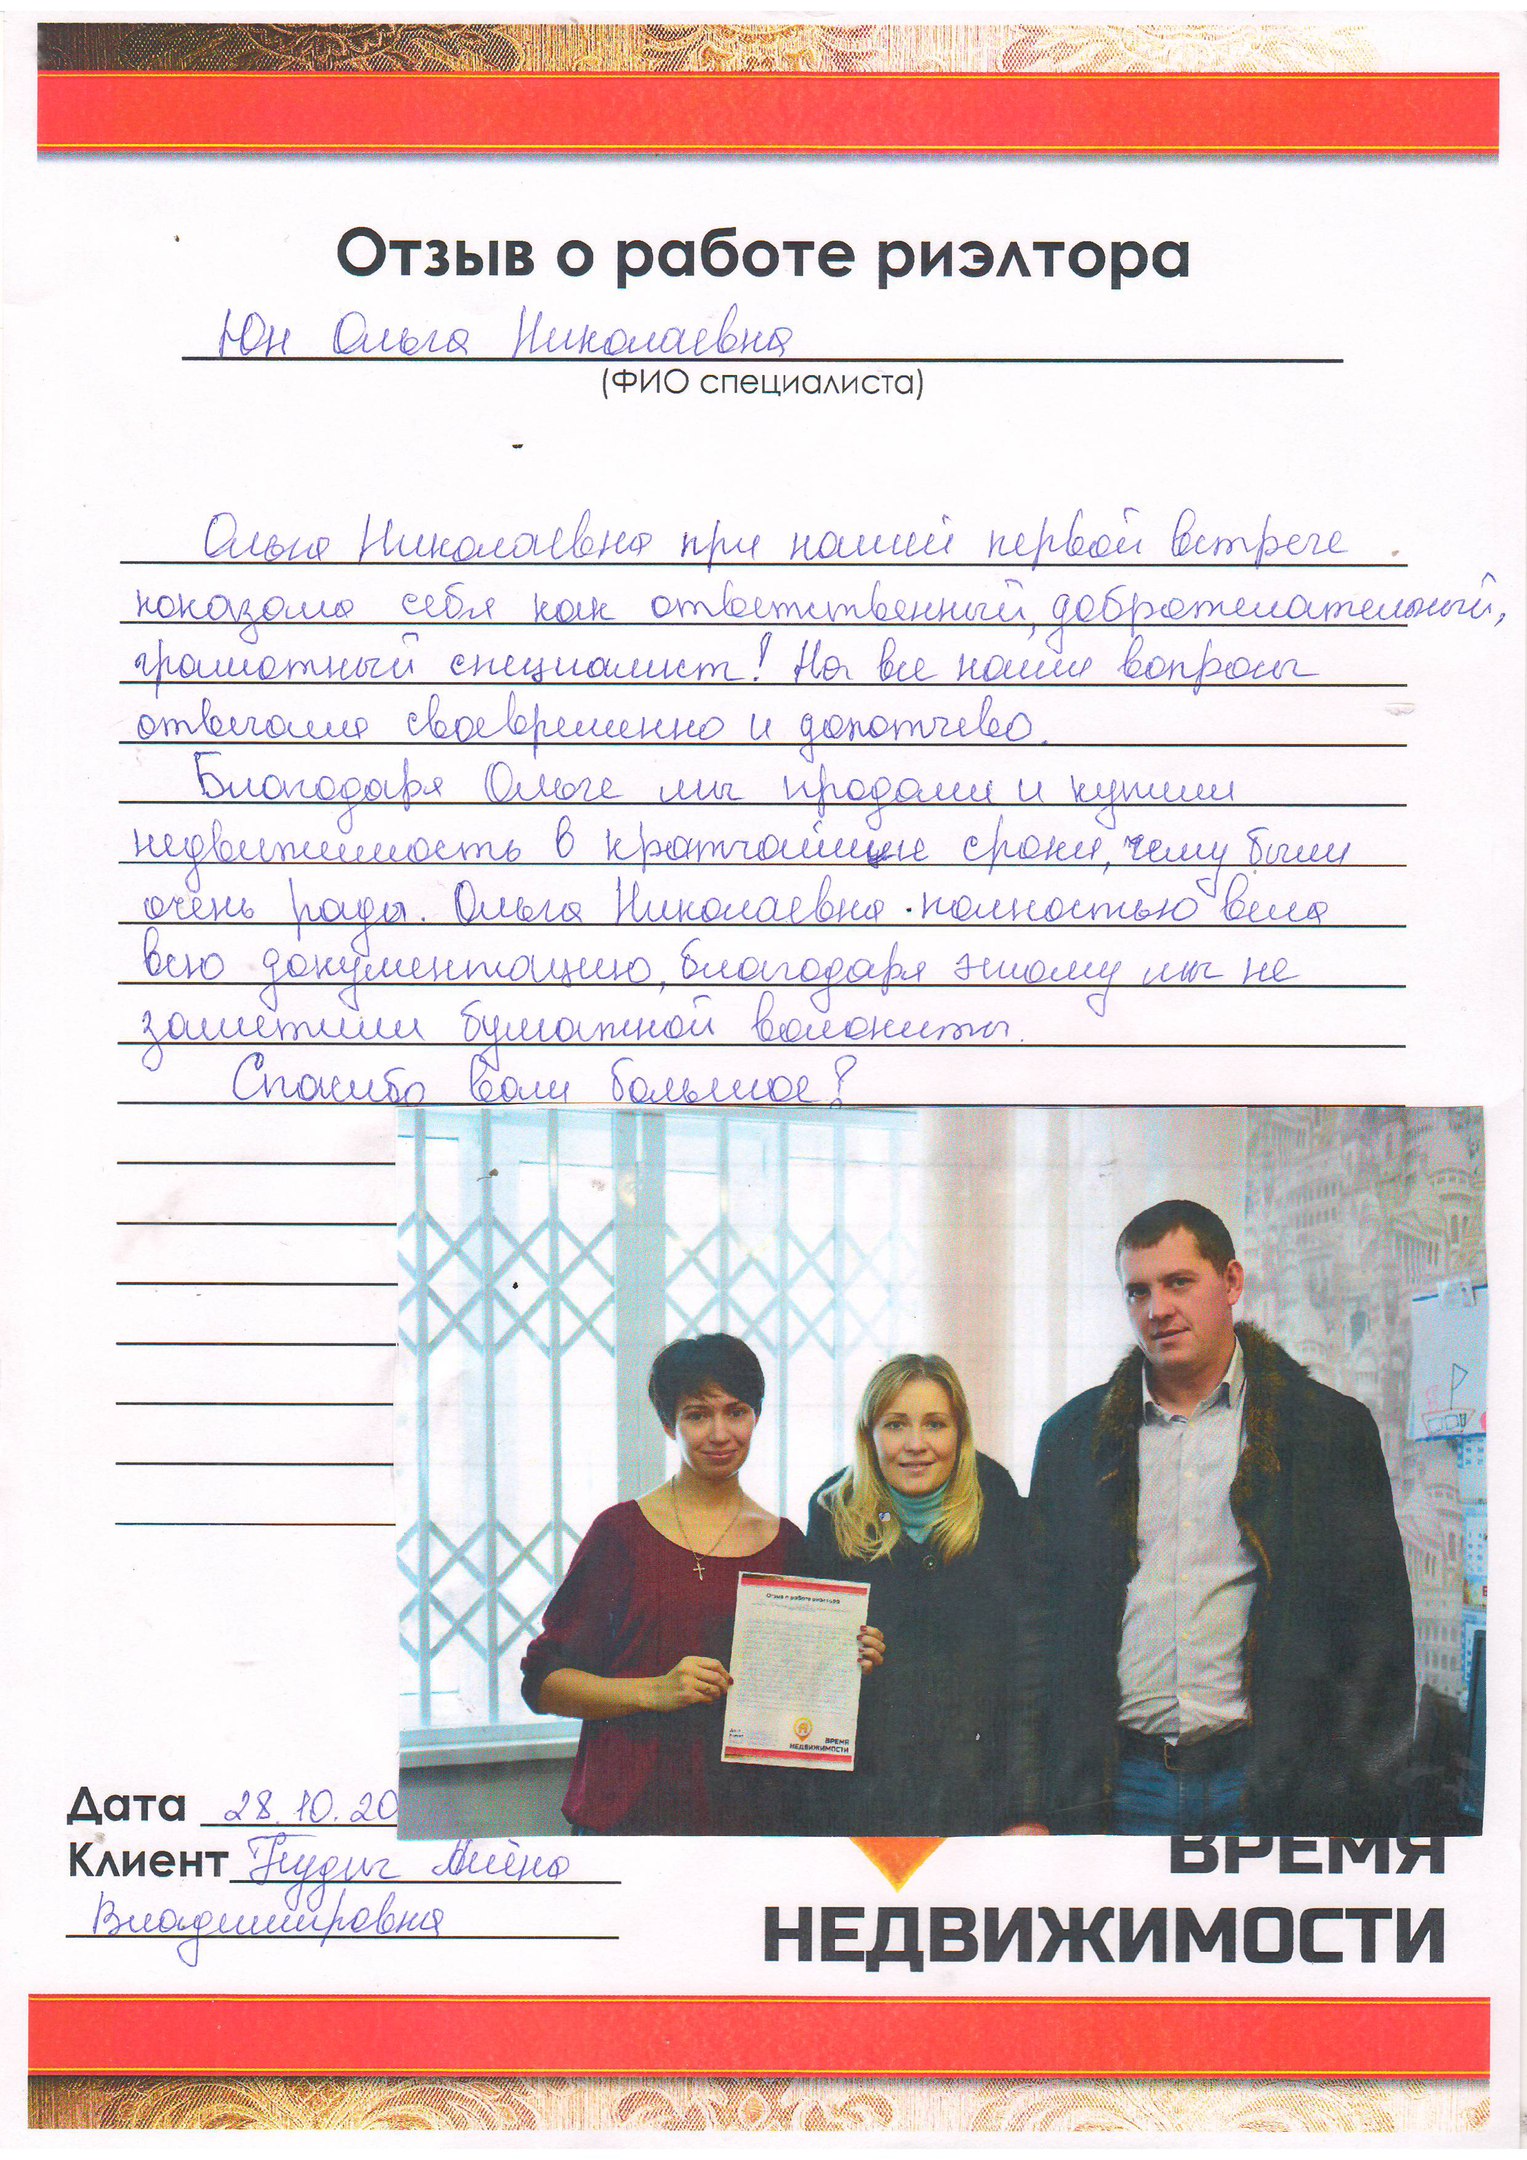 Отзыв о работе риэлтора
Юн Ольга Николаевна
(ФИО специалиста)
Ольга Николаевна при нашей первой встрече
показала себя как ответственный, доброжелательный,
грамотный специалист! На все наши вопросы
отвечала своевременно и доходчиво.
Благодаря Ольге мы продали и купили
недвижимость в кратчайшие сроки, чему были
очень рады. Ольга Николаевна полностью вела
всю документацию, благодаря этому мы не
заметили бумажной волокиты.
Спасибо Вам большое!
Отзыв о работе риэлтора
ВРЕМЯ
НЕДВИЖИМОСТИ
Дата 28.10.20
Клиент Алёна
Владимировна
ВРЕМЯ
НЕДВИЖИМОСТИ